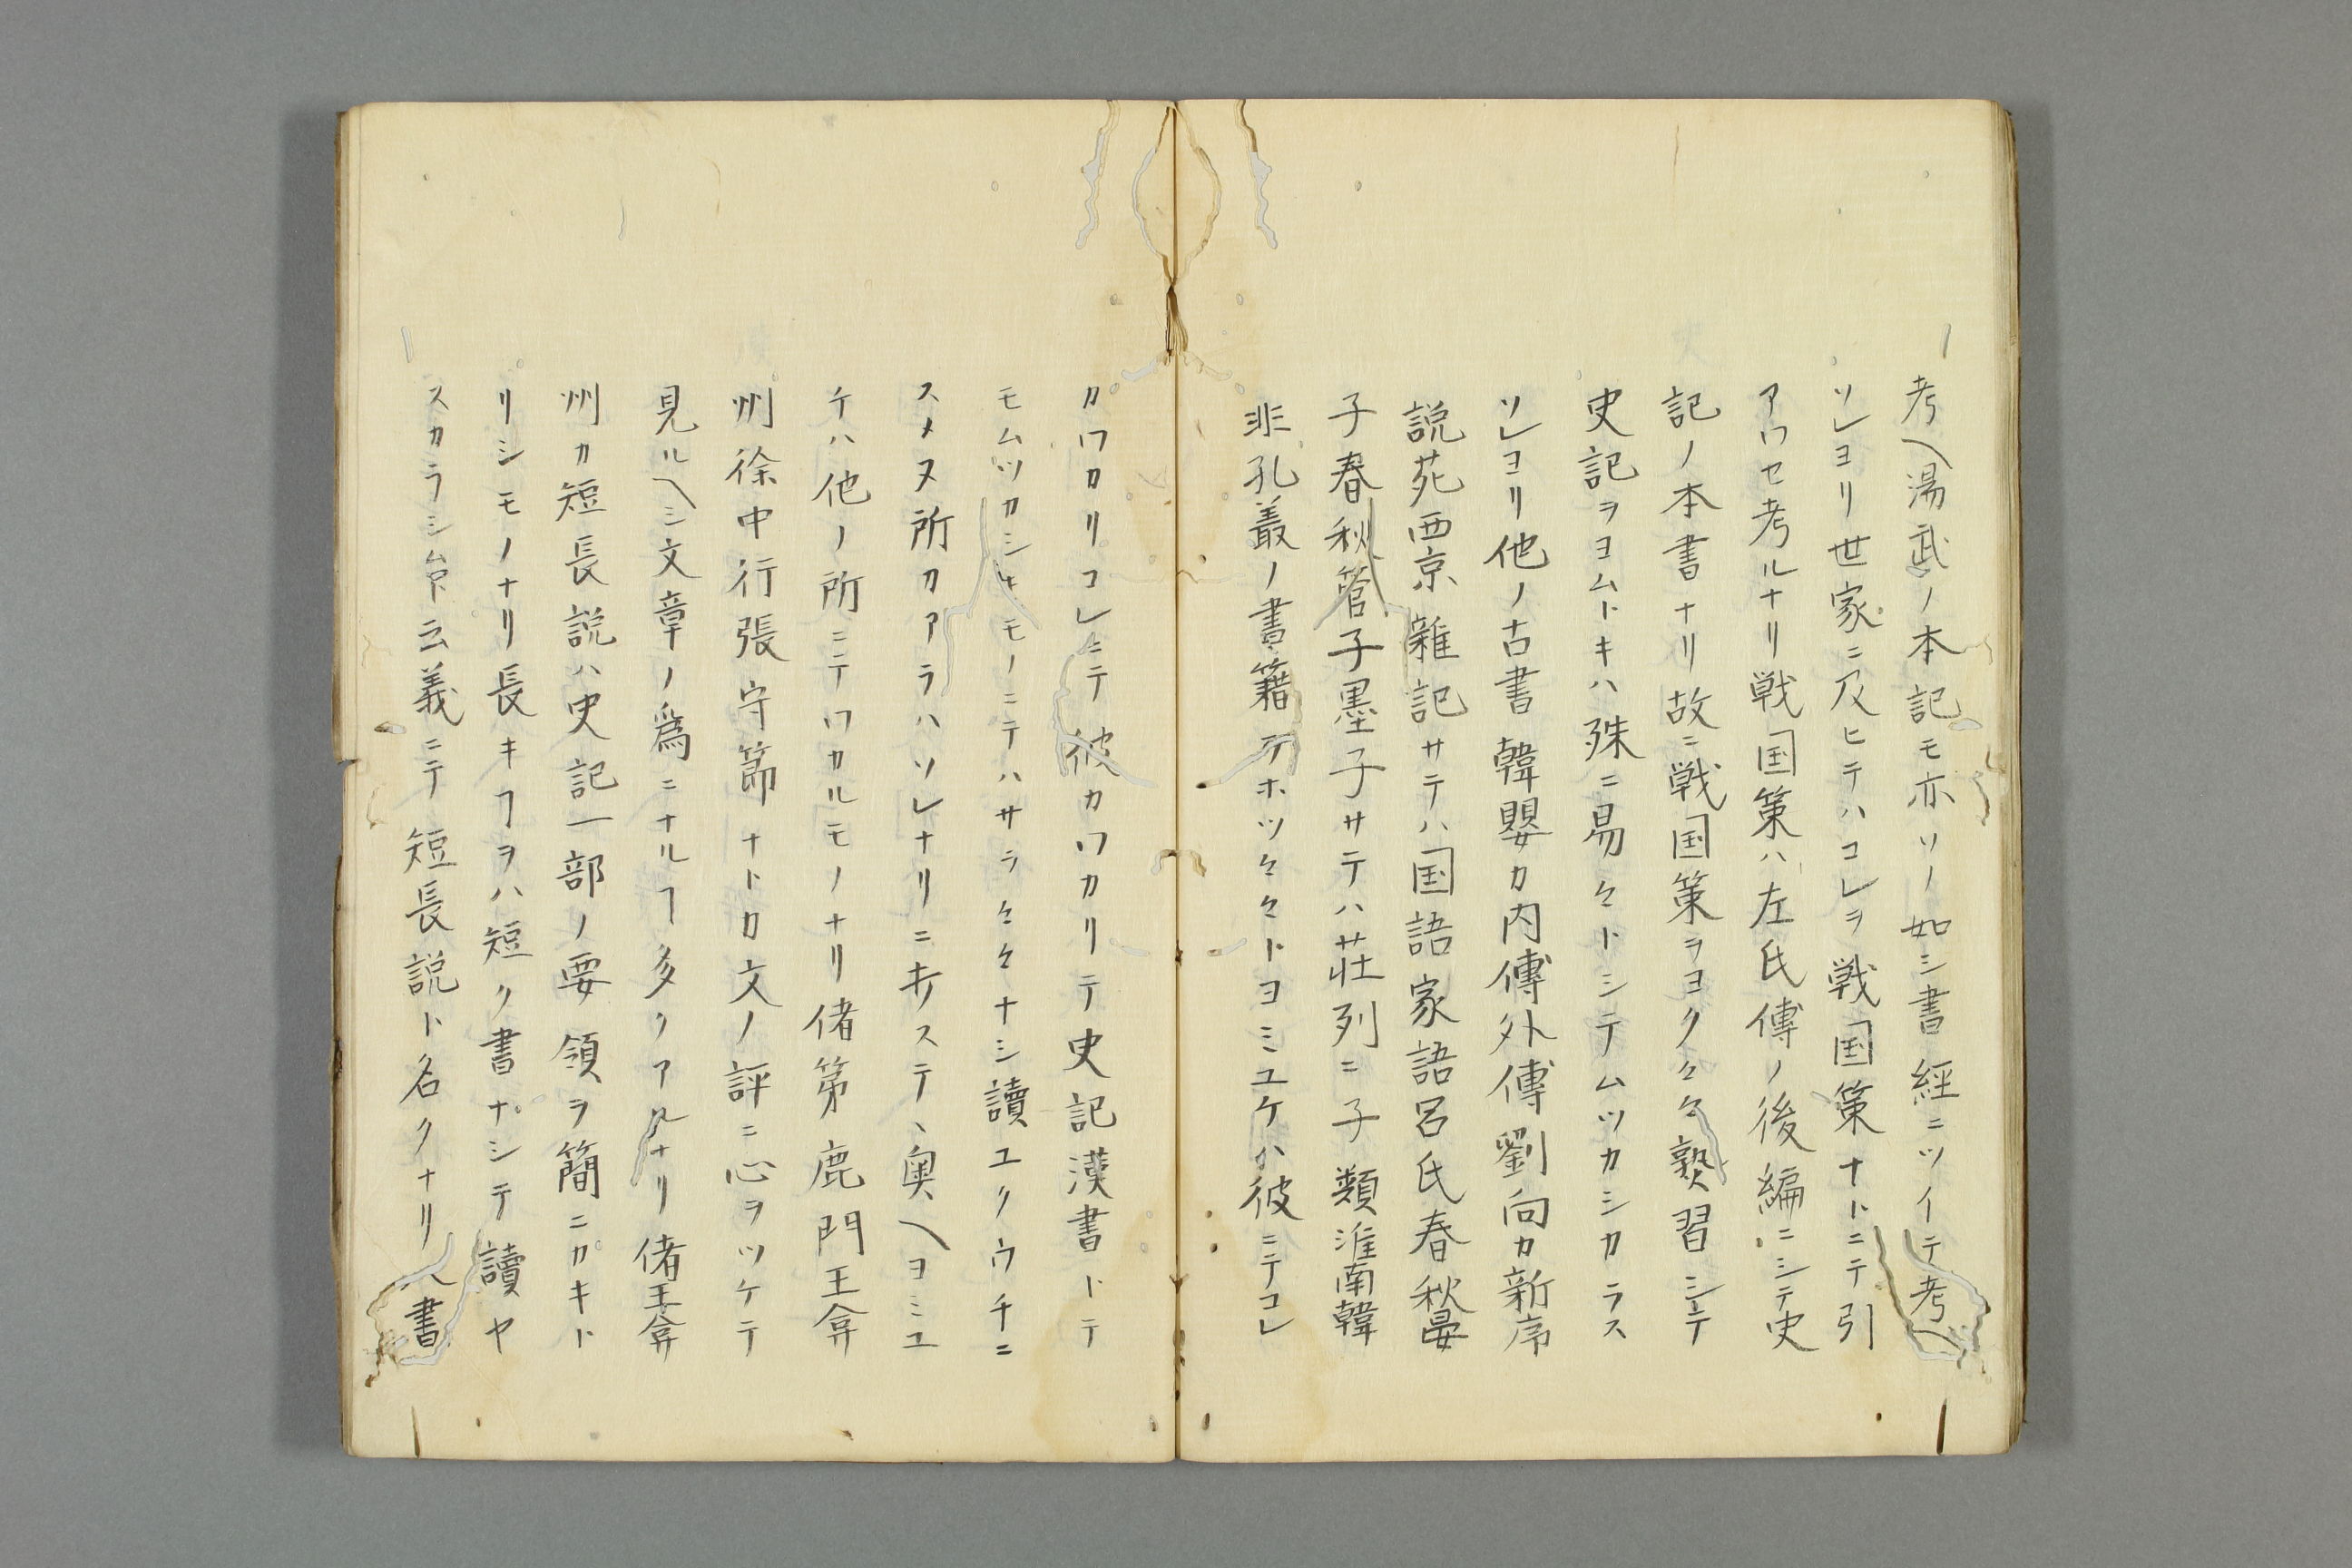 考ヘ湯武ノ本記モ亦ソノ如シ書經ニツイテ考ヘ
ソレヨリ世家ニ及ヒテハコレヲ戦国策ナトニテ引
アワセ考ルナリ戦国策ハ左氏傳ノ後編ニシテ史
記ノ本書ナリ故ニ戦国策ヲヨク々々熟習シテ
史記ヲヨムトキハ殊ニ易々トシテムツカシカラス
ソレヨリ他ノ古書韓嬰カ内傳外傳劉向カ新序
説苑西京雜記サテハ国語家語呂氏春秋晏
子春秋管子墨子サテハ荘列ニ子類淮南韓
非孔叢ノ書籍ヲホツ々々トヨミユケハ彼ニテコレ
カワカリコレニテ彼カワカリテ史記漢書トテ
モムツカシキモノニテハサラ々々ナシ讀ユクウチニ
スメヌ所カアラハソレナリニ指ステヽ奥ヘヨミユ
ケハ他ノ所ニテワカルモノナリ偖第鹿門王弇
州徐中行張守節ナトカ文ノ評ニ心ヲツケテ
見ルヘシ文章ノ爲ニナルヿ多クアルナリ偖王弇
州カ短長説ハ史記一部ノ要領ヲ簡ニカキト
リシモノナリ長キヿヲハ短ク書ナシテ讀ヤ
スカラシムト云義ニテ短長説ト名クナリ入書